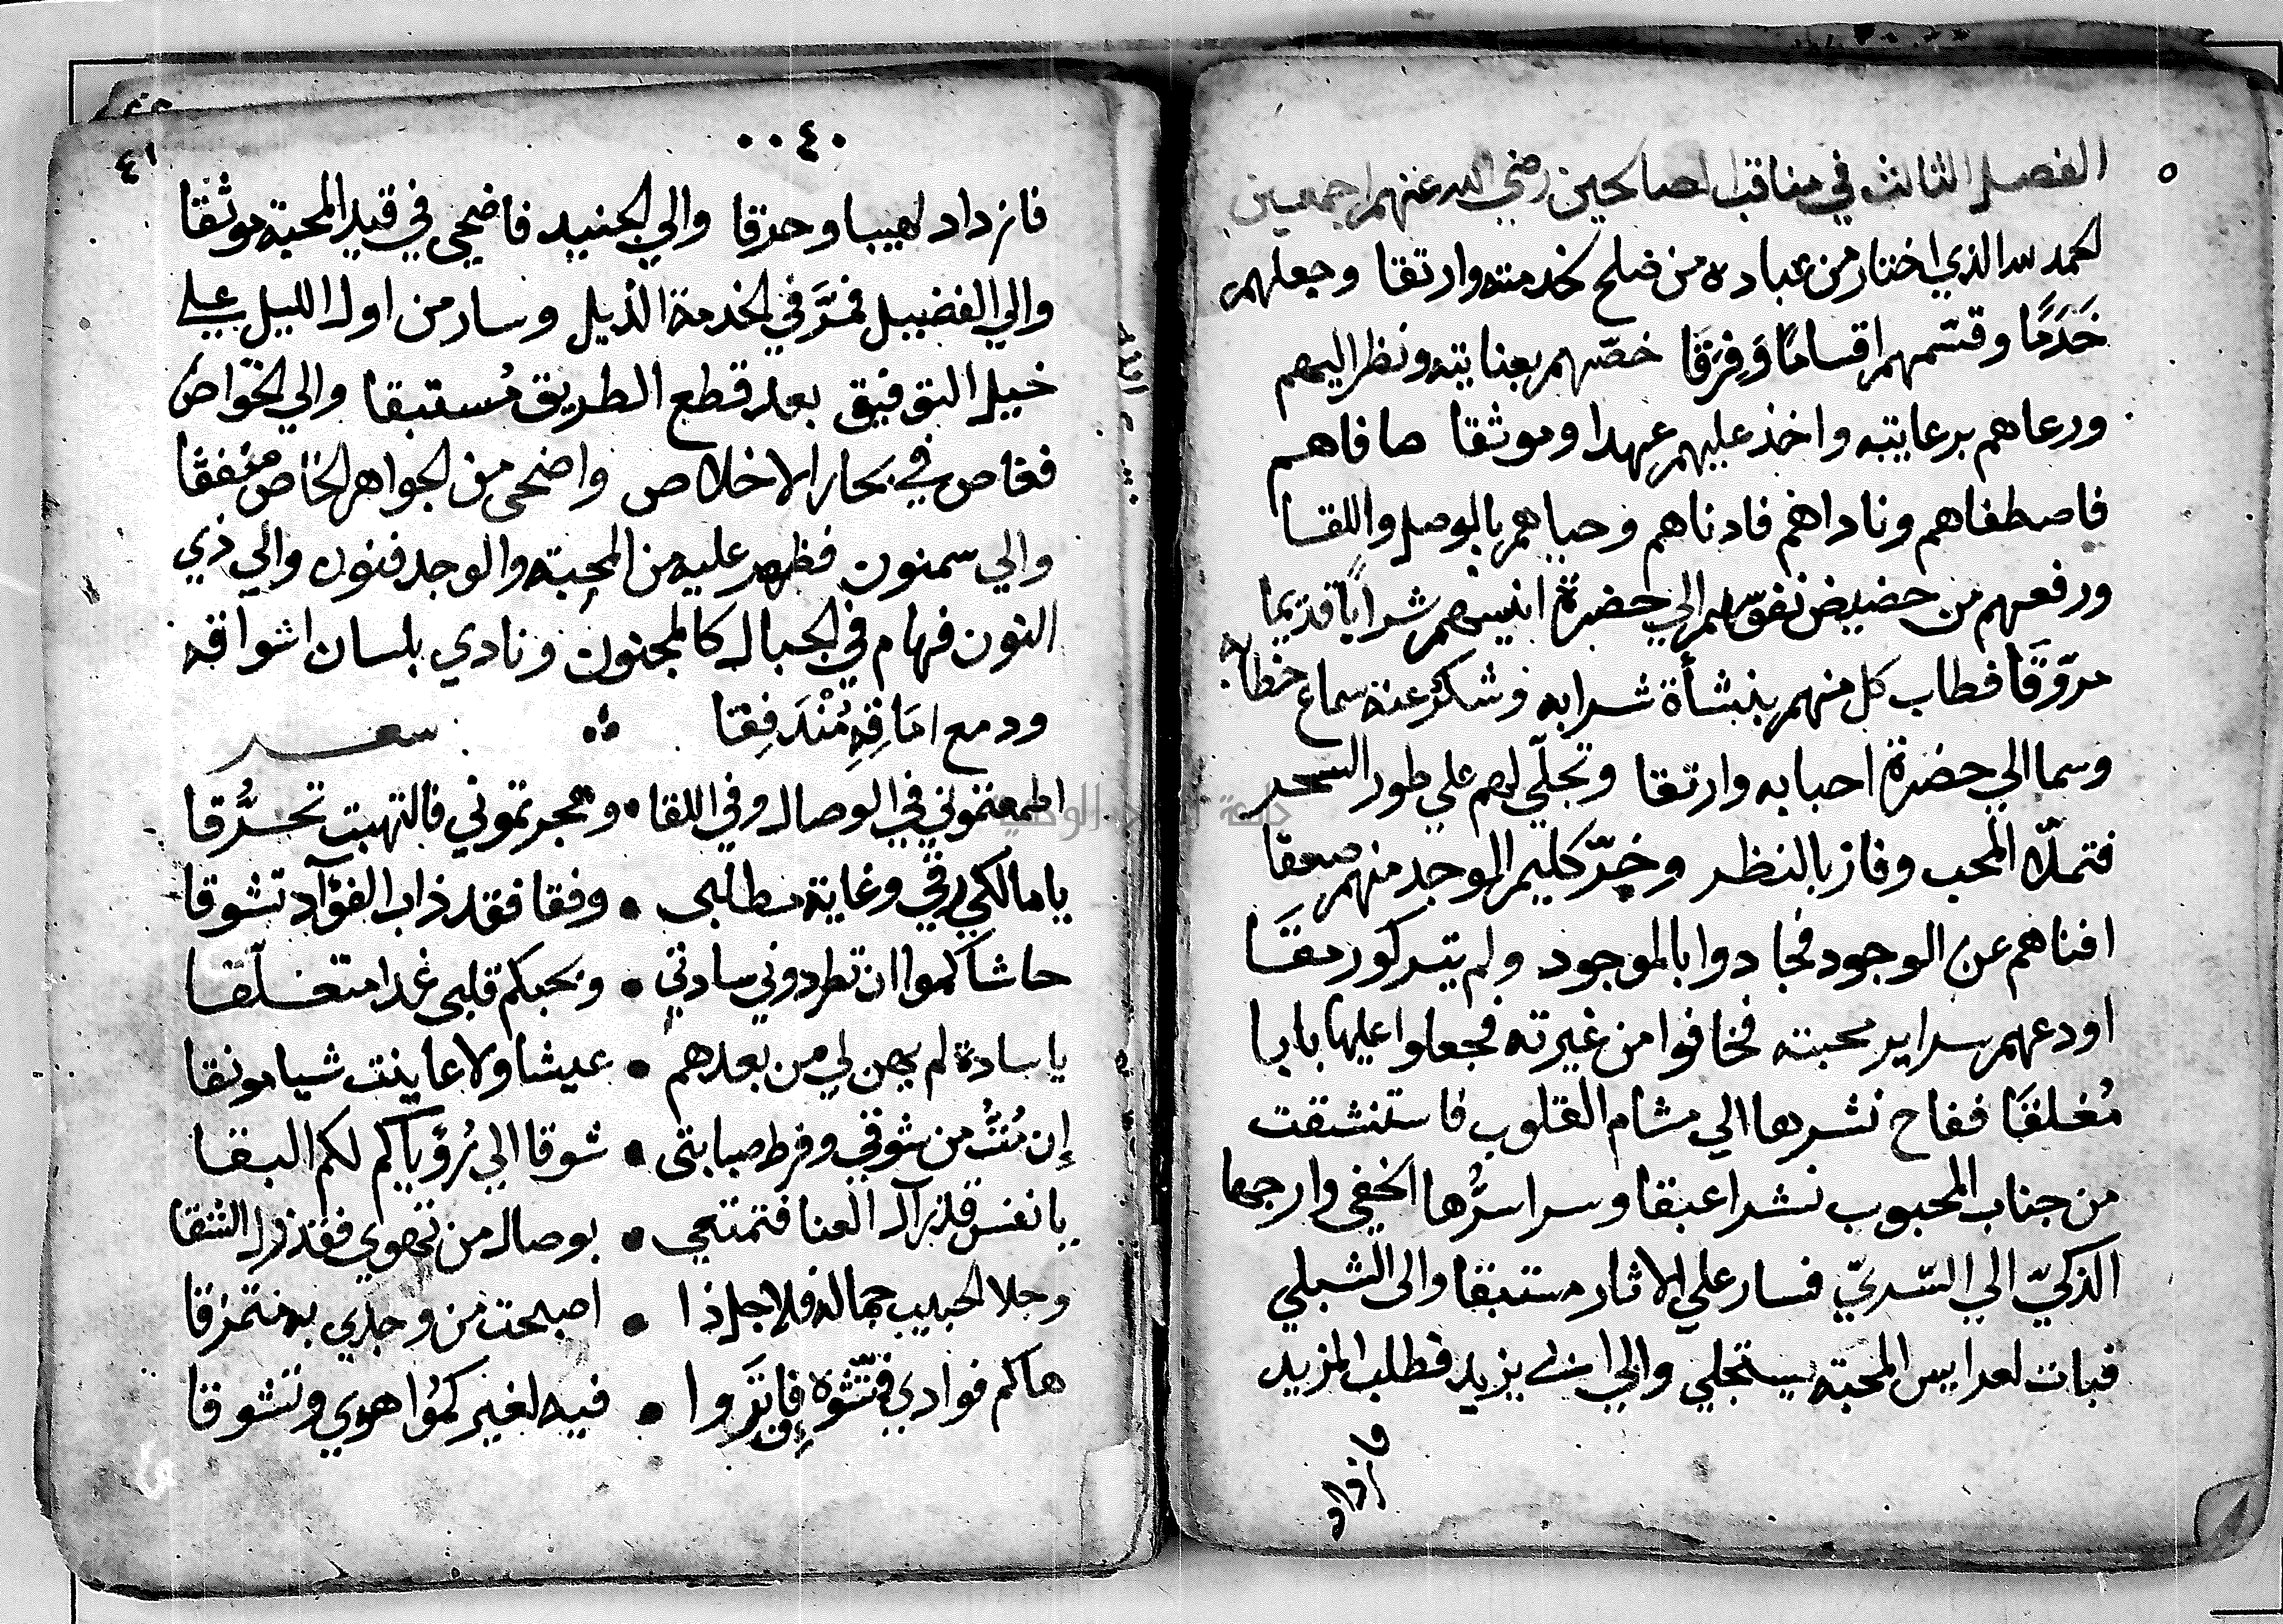 الفصل الثالث في مناقب الصالحين رضي الله عنهم اجمعين
الحمد لله الذي اختار من عباده من صلح لخدمته وارتقا وجعلهم
خَدَمًا وقسّمهم اقسامًا وَفِرَقَا خصّهم بعنايته ونظر اليهم
ورعاهم برعايته واخذ عليهم عهدا وموثقا صافاهم
فاصطفاهم وناداهم فادناهم وحباهم بالوصل واللقا
ورفعهم من حضيض نفوسهم الي حضرة انيسهم شرابًا قديما
مروّقًا فطاب كل منهم بنشأة شرابه وشكر عند سماع خطابه
وسما الي حضرة احبابه وارتقا وتجلّي لهم علي طور السحر
فتملّا المحب وفاز بالنظر وخرّ كليم الوجد منهم صعقا
افناهم عن الوجود فجادوا بالموجود ولم يتركو رمقا
اودعهم سراير محبته فخافوا من غيرته فجعلوا عليها بابا
مُغلقًا ففاح نشرها الي مشام القلوب فاستنشقت
من جناب المحبوب نشرا عبقا وسرا سرُّها الخفي وارجها
الذكيّ الي السّريّ فسار علي الاثار مستبقا والى الشبلي
فبات لعرايس المحبة يستجلي والي ابي يزيد فطلب المزيد
فازداد
٤٠
٤١
فازداد لهيبا وحرقا والي الجنيد فاضحي في قيد المحبة موثقا
والي الفضيل فمرَّ في الخدمة الذيل وسار من اول الليل علي
خيل التوفيق بعد قطع الطريق مُستبقا والي الخوّاص
فغاص في بحار الاخلاص واضحى من الجواهر الخاص منفقا
والي سمنون فظهر عليه من المحبة والوجد فنون والي ذي
النون فهام في الجبال كالمجنون ونادي بلسان اشواقه
ودمع امَاقِهِ مُنْدَفِقا شعر
اطمعتموني في الوصال وفي اللقا • وهجرتموني فالتهبت تحرُّقا
يا مالكي رقي وغاية مطلبى • رفقا فقد ذاب الفؤآد تشوقا
حاشاكموا ان تطردوني سادتي • وبحبكم قلبى غدا متعلّقا
يا سادة لم يهن لي من بعدهم • عيشا ولا عاينت شيا مونقا
إن مُتُّ من شوقي وفرط صبابتى • شوقا الي رُؤياكم لكم البقا
يا نفس قد زآل العنا فتمتعي • بوصال من تهوي فقد زال الشقا
وجلا الحبيب جماله فلاجل ذا • اصبحت من وجدي به متمزقا
هاكم فوادي فتّشوه فان تروا • فيه لغيركمُوا هوي وتشوقا